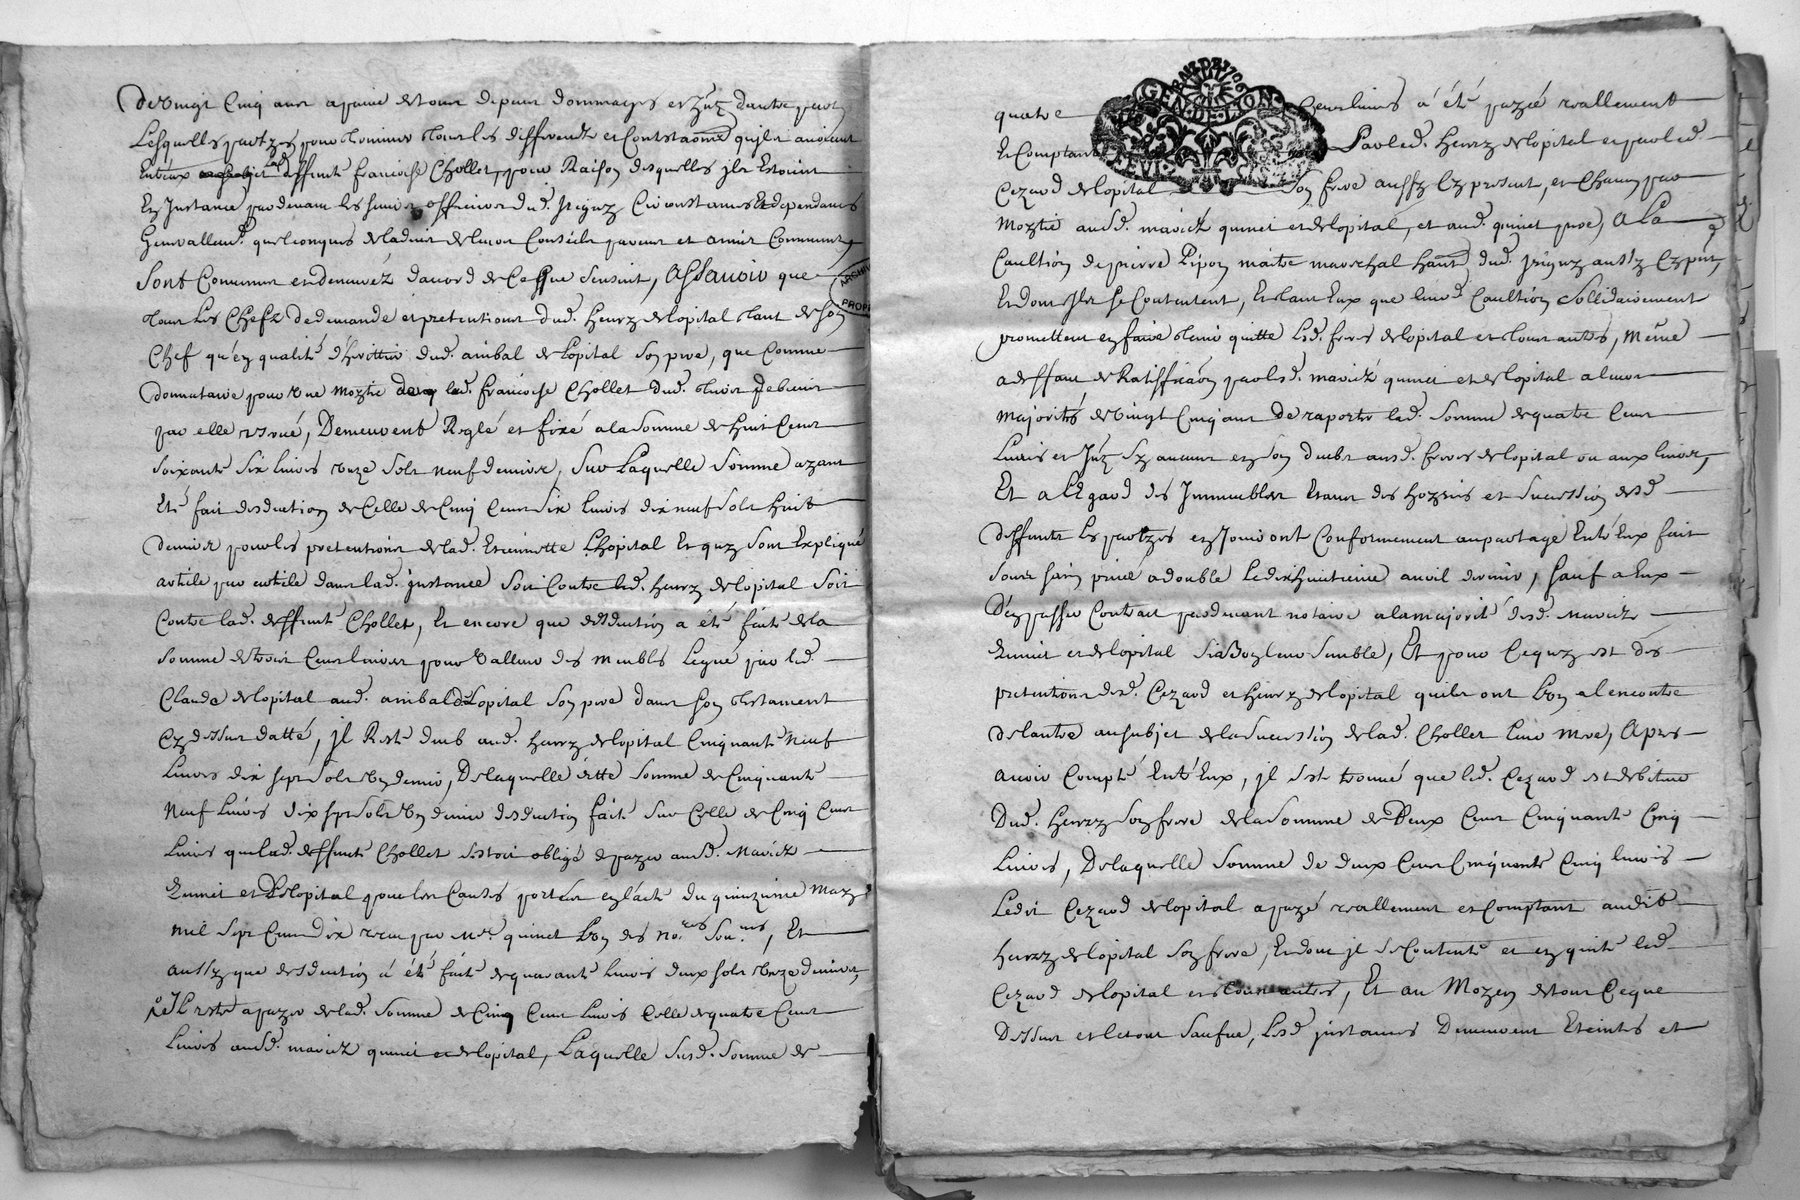 De Vingt Cinq ans a paine de tous depans dommages et d'autre part
Lesquelles partyes pour terminer tous les differendz et Contestaõns quils avoient
Entreux lad. deffunte francoise Chollet, pour Raison desquelles jls Estoient
En Jnstance pardevant les sieurs officiers dud. Circonstances et dependances
Generallemt. quelconques de Conseils parens et amis Communs,
Sont Convenus et demeurez dacord de Ce que Sensuit, Assavoir que
tous Les Chefz de demande et pretentions dud. henry de lopital tant de son
Chef qu'en qualité d'heritier dud. anibal de Lopital son pere, que Comme
donnataire pour Une Moytie de lad. francoise Chollet
par elle Demeurent Reglé et fixé a la Somme de huit Cens
soixante Six livres onze sols neuf deniers, Sur Laquelle Somme ayant
Eté fait desduction de Celle de Cinq Cens Six livres dix neuf sols huit
deniers pour les pretentions de lad. Estiennette Lhopital Et quy sont Expliqué
article par article dans lad. jnstance Soit Contre led. henry de lopital Soit
Contre lad. deffunte Chollet, Et encore que desduction a été faite de la
somme de trois Cens livres pour Valleur des meubles Legué par led.
Claude de lopital aud. anibal de Lopital son pere dans son testament
Cy dessus datté, jl Reste deub aud. henry de lopital Cinquante Neuf
Livres dix sept sols Un denier, De laquelle ditte Somme de Cinquante
neuf Livres dix sept sols Un denier desduction faite Sur Celle de Cinq Cens
livres que lad. deffunte Chollet sestoit obligé de payer ausd. Mariez
quinet et Delopital pour les Causes portées en l'acte du quinzieme May
mil sept Cens dix receu par Me. quinet L'un des nores. Sou.nés, Et
aussy que desduction a été faite de quarante livres deux sols onze deniers,
jl reste a payer de lad. Somme de Cinq Cens livres Celle de quatre Cens
Livres ausd. mariez quinet et de lopital, Laquelle susd. Somme de
quatre Cens livres a été payée reallement
Et Comptant Par led. henry de lopital et par led.
Cezard de lopital son frere aussy Cy present, et Chacun par
Moytié ausd. mariez quinet et de lopital, et aud. quinet pere, A La
Caultion de pierre Pipon maitre mareschal aussy Cy pnt,
Et dont jls se Contentent, Et tant Eux que leurd. Caultion Sollidairement
promettent en faire tenir quitte lesd. freres de lopital et tous autres, même
a deffaut de Ratiffication par lesd. mariez quinet et de lopital a leur
majorités de Vingt Cinq ans De raporter lad. Somme de quatre Cens
Livres et sy aucuns en son deubs ausd. freres de lopital ou aux leurs,
Et a L'Egard des Jmmeubles Etans des hoyries et Succession desd.
deffuntes Les partyes en Jouiront Conformement au partage Entr'Eux fait
sous sein privé a double Le dixhuitieme avril dernier, sauf a Eux
D'en passer Contract pardevant notaire a la majorité desd. mariez
quinet et de lopital Si Bon leur Semble, Et pour Ce quy est des
pretentions desd. Cezard et henry de lopital quils ont L'un a lencontre
de lautre au subjet de la Succession de lad. Chollet leur mere, Apres
avoir Compté Entr'Eux, jl s'est trouvé que led. Cezard est debiteur
Dud. henry son frere de la Somme de Deux Cens Cinquante Cinq
Livres, De laquelle Somme de deux Cens Cinquante Cinq livres
Ledit Cezard de lopital a payé reallement et Comptant audit
henry de lopital son frere, Et dont jl se Contente et en quitte led.
Cezard de lopital et tous autres, Et au Moyen de tout Ce que
Dessus et le tout Saufue, Lesd. jnstances Demeurent Eteintes et